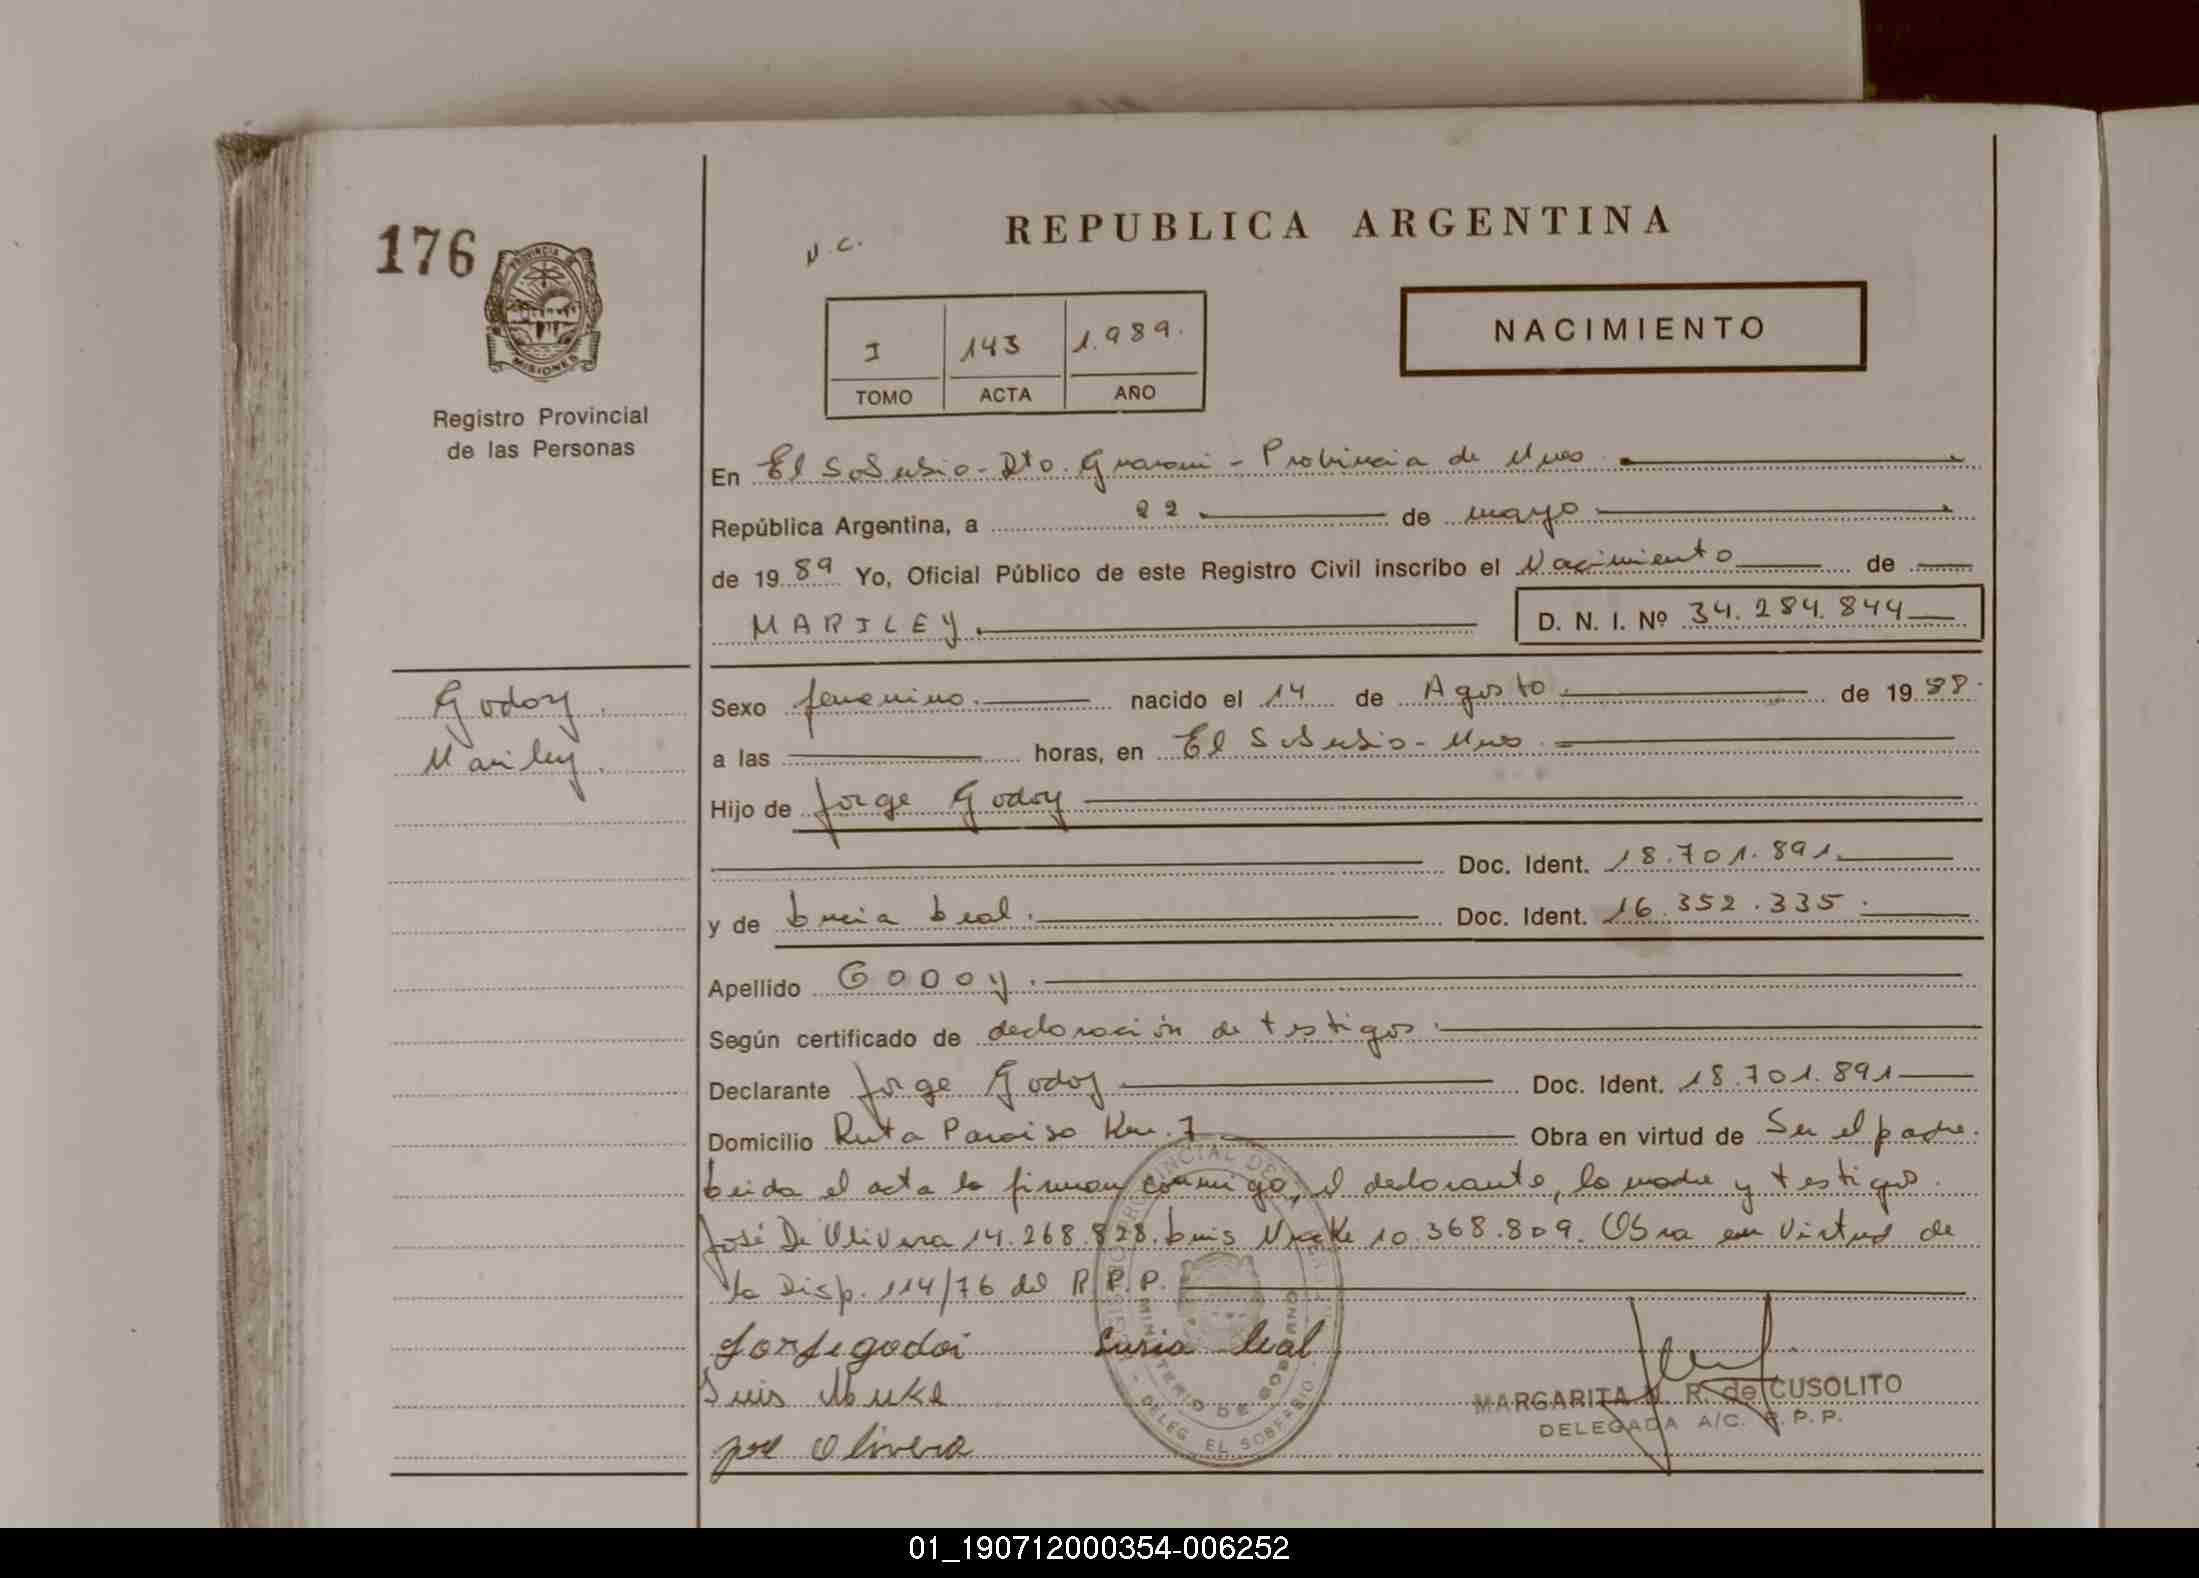 176
PROVINCIA DE
MISIONES
Registro Provincial
de las Personas
N.C.
REPUBLICA ARGENTINA
I 143 1.989.
TOMO ACTA AÑO
NACIMIENTO
En El Soberbio - Dto. Guarani - Provincia de Mnes
República Argentina, a 22 de mayo
de 1989 Yo, Oficial Público de este Registro Civil inscribo el Nacimiento de
MARILEY D. N. I. Nº 34.284.844
Godoy.
Mariley.
Sexo femenino. nacido el 14 de Agosto de 1988.
a las horas, en El Soberbio - Mnes.
Hijo de Jorge Godoy
Doc. Ident. 18.701.891
y de Lucia Leal. Doc. Ident. 16.352.335.
Apellido GODOY.
Según certificado de declaración de testigos.
Declarante Jorge Godoy Doc. Ident. 18.701.891
Domicilio Ruta Paraiso Km. 7 Obra en virtud de Ser el padre.
Leida el acta la firman conmigo, el declarante, la madre y testigos.
José De Olivera 14.268.828. Luis 10.368.809. Obra en Virtud de
la Disp. 114/76 del R.P.P.
Jorje godoi Lusia leal
Luis
jose Olivera
MINISTERIO DE GOBIERNO
DELEG. EL SOBERBIO
MARGARITA R. de CUSOLITO
DELEGADA A/C. R.P.P.
01_190712000354-006252